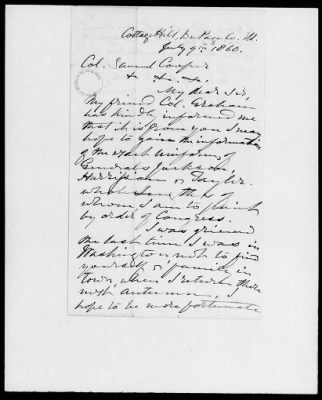 Cottage Hill, Du Page Co. Ill.
July 9th 1860.
Col. Samuel Cooper
My dear Sir,
My friend Col. Graham
has kindly informed me
that it is from you I may
hope to gain the information
of the exact uniforms of
Generals Jackson
Harrison & Taylor.
whole len the s of
whom I am to paint
by order of Congress.
I was grieved
the last time I was in
Washington, not to find
yourself & family in
town, when I return there
next autumn,
hope to be more fortunate